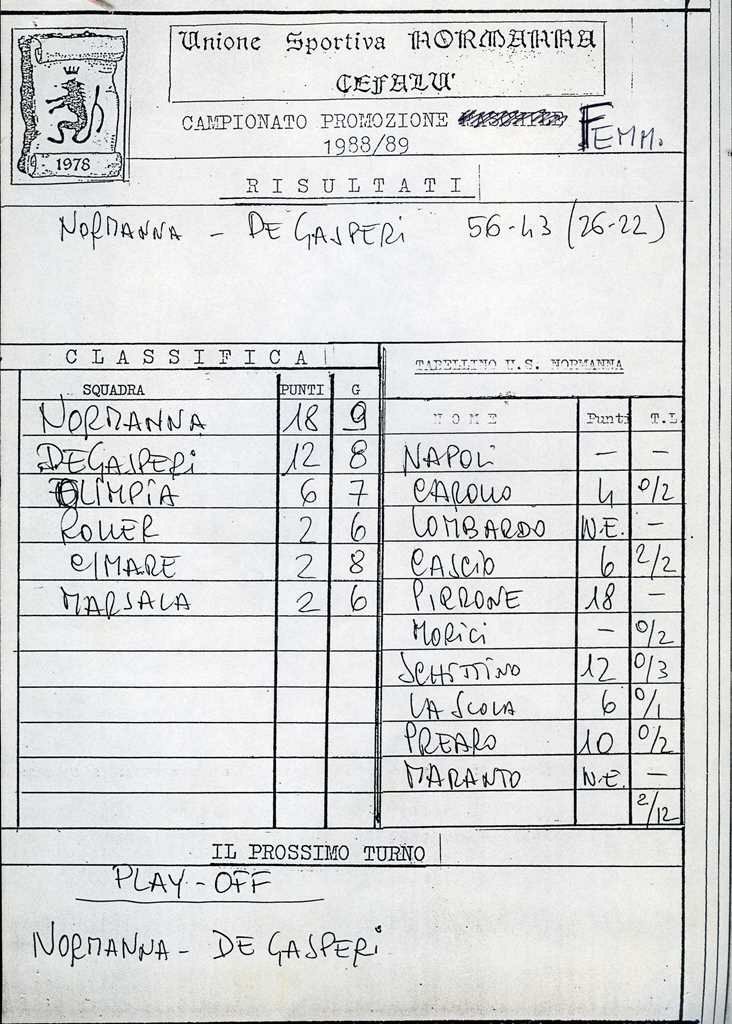 Unione Sportiva NORMANNA
CEFALU'
CAMPIONATO PROMOZIONE FEMM.
1988/89
1978
RISULTATI
NORMANNA - DE GASPERI 56-43 (26-22)
CLASSIFICA
SQUADRA PUNTI G
NORMANNA 18 9
DE GASPERI 12 8
OLIMPIA 6 7
ROLLER 2 6
CIMARE 2 8
MARSALA 2 6
TABELLINO U.S. NORMANNA
NOME Punti T.L
NAPOLI — —
CAROLLO 4 0/2
LOMBARDO N.E. —
CASCIO 6 2/2
PIRRONE 18 —
MORICI — 0/2
SCHITTINO 12 0/3
LA SCOLA 6 0/1
PREARO 10 0/2
MARANTO N.E. —
2/12
IL PROSSIMO TURNO
PLAY-OFF
NORMANNA - DE GASPERI